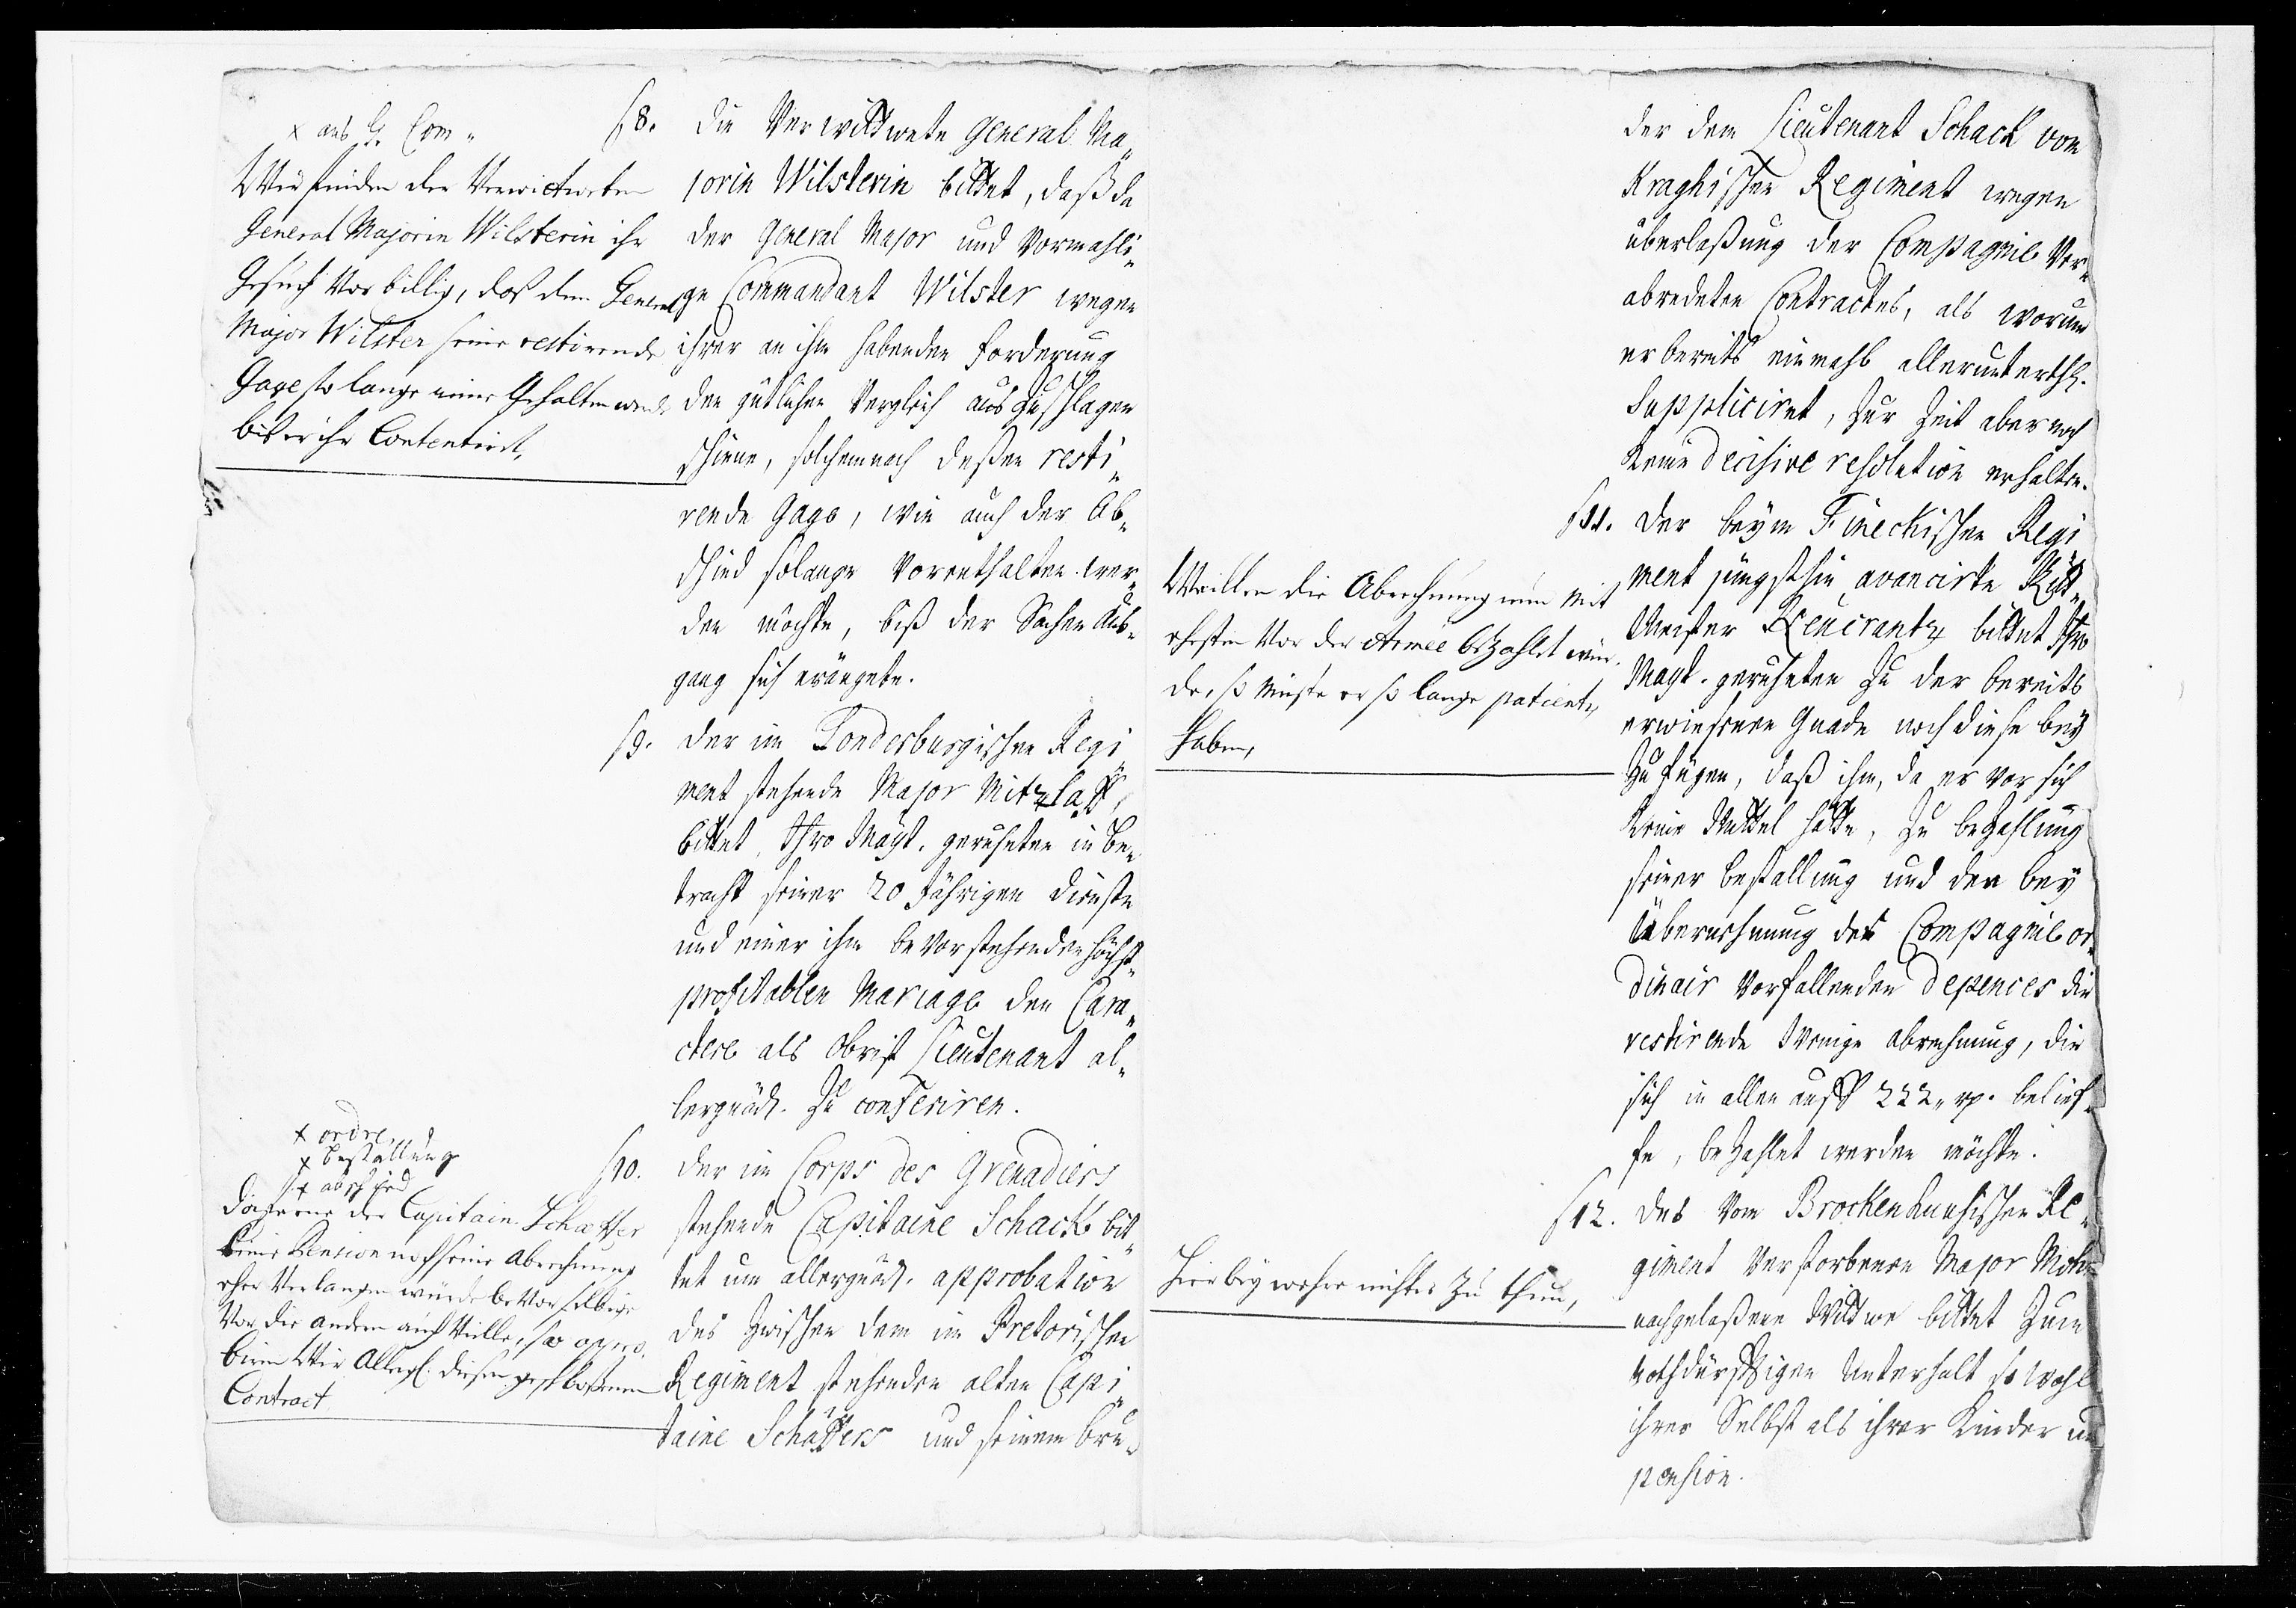 x aus G. Com„
Wir finden der Verwictweten
General Majorin Wilsterin ihr
Gesuch vor billig, daß dem General
Major Wilster seine restirende
Gage so lange inne gehalten werde
bis er ihr Contentirt,
§8. Die Verwittwete General Ma„
jorin Wilsterin bittet, daß da
der General Major und vormahli„
ge Commandant Wilster wegen
ihrer an ihm habenden forderung
den gütlichen Vergleich auszuschlagen
schiene, solchemnach deßen resti„
rende Gage, wie auch der Ab„
schied solange vorenthalten wer„
den möchte, biß der Sachen Aus„
gang sich eräugete.
§9. Der im Sonderburgischen Regi„
ment stehende Major Mitzlaff,
bittet, Ihro Mayt. geruheten in Be„
tracht seiner 20 Jährigen Dienste
und einer ihm bevorstehenden höchst„
profitablen Mariage den Cara„
ctere als Obrist Lieutenant al„
lergnäd. zu conferiren.
x ordre,
x bestallung
x abschied
Daferne der Capitain Schætter
keine Pension noch seine Abrechnung
eher verlangen würde bevor selbige
vor die andern auch fielle, so appro„
biren Wir Allergl. diesen geschloßenen
Contract
§10. Der im Corps des Grenadiers
stehende Capitaine Schack bit„
tet um allergnäd. approbation
des zwischen dem im Pretorischen
Regiment stehenden alten Capi„
taine Schätters und seinem Bru„
der dem Lieutenant Schack vom
Kraghischen Regiment wegen
überlaßung der Compagnie ver„
abredeten Contractes, als worum
er bereits einmahl allerunterth.
Suppliciret, zur Zeit aber noch
keine decisive resolution erhalten.
§11. Der beym Fineckischen Regi
ment jüngsthin avancirte Ritt„
Meister Reucrantz bittet Ihro
Mayt. geruheten zu der bereits
erwiesenen Gnade noch diese bey
zu fügen, daß ihm, da er vor sich
keine Mittel hätte, zu bezahlung
seiner bestallung und der bey
Übernehmung der Compagnie or„
dinair vorfallenden depences die
restirende Wenige abrechnung, die
sich in allen auff 222„ rp. belief„
fe, bezahlet werden möchte.
Weillen die Abrechnung nun mit
ehesten vor der Armee bezahlt wür„
de, so müste er so lange patientz
haben,
§12. Des vom Brockenhuusischen Re„
giment verstorbenen Major Mohr
nachgelaßene Wittwe bittet zum
nothdürfftigen Unterhalt so wohl
ihrer Selbst als ihrer Kinder um
pension.
Hierbey wehre nichtes zu thun,